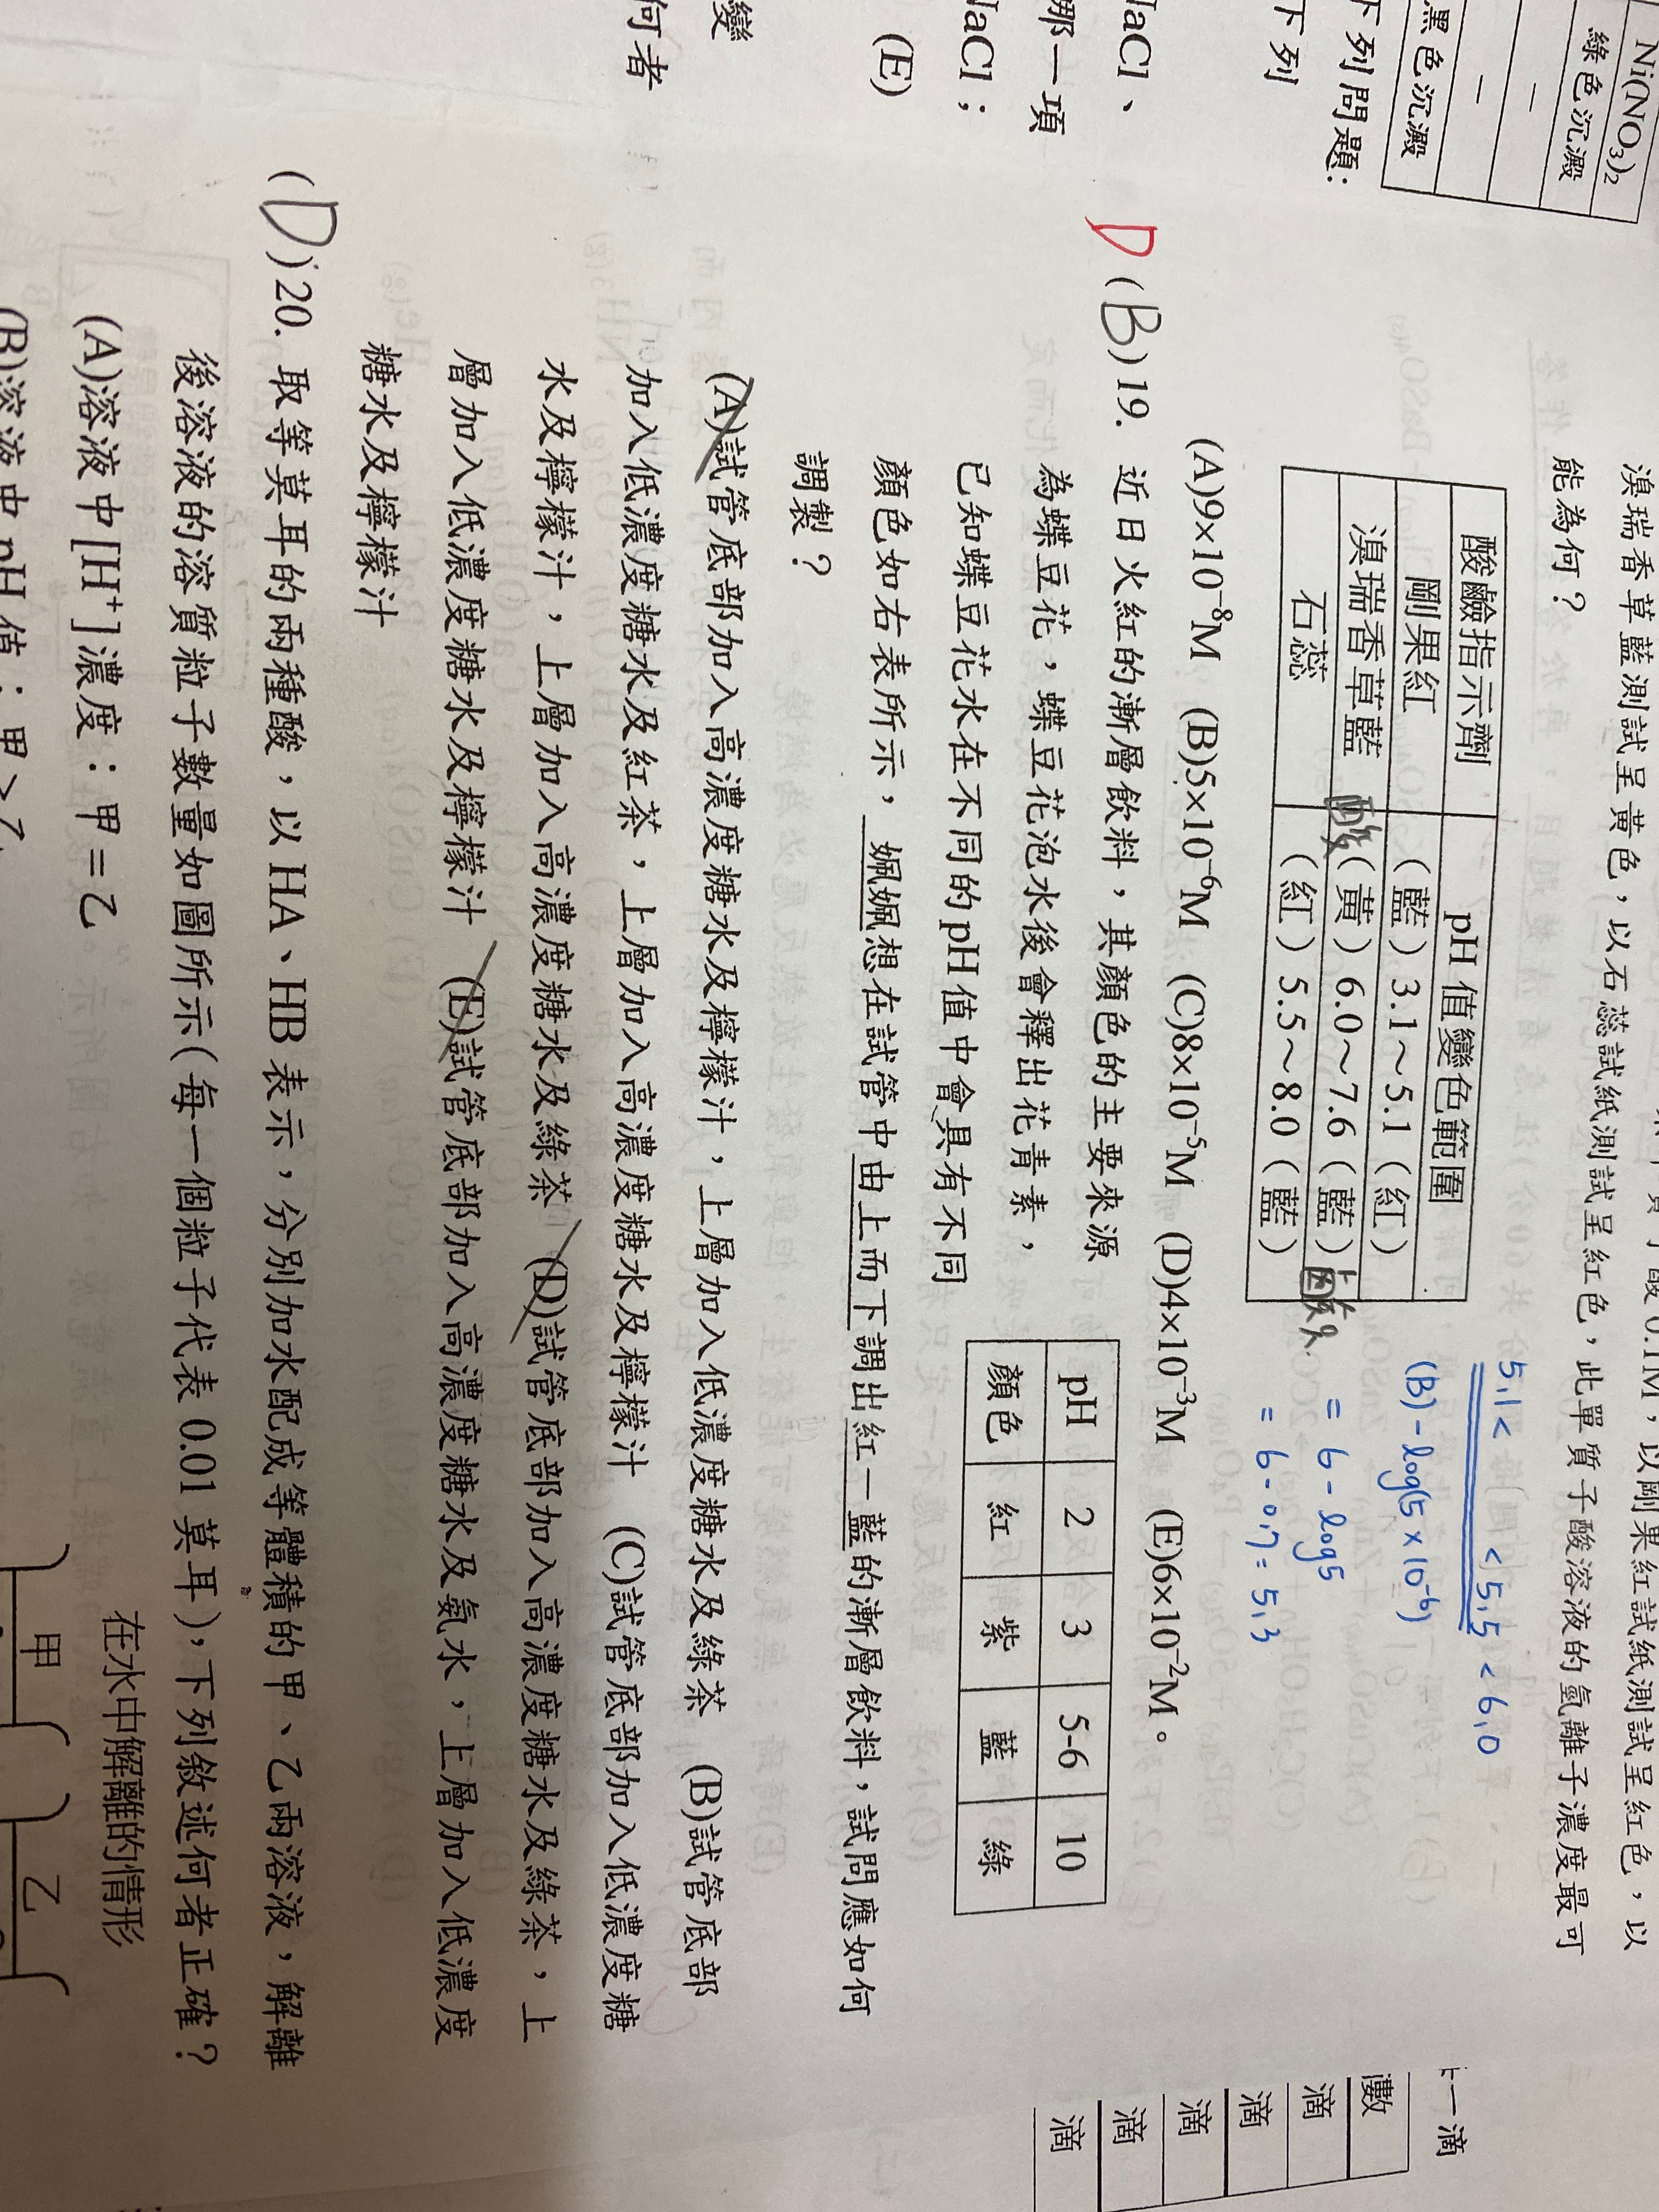 Ni(NO₃)₂
綠色沉澱
－
－
黑色沉澱
下列問題:
下列
NaCl、
哪一項
NaCl；
(E)
變
何者
酸0.1M，以剛果紅試紙測試呈紅色，以
溴瑞香草藍測試呈黃色，以石蕊試紙測試呈紅色，此單質子酸溶液的氫離子濃度最可
能為何？
酸鹼指示劑 pH 值變色範圍
剛果紅 （藍）3.1～5.1（紅）
溴瑞香草藍 酸（黃）6.0～7.6（藍）
石蕊 （紅）5.5～8.0（藍）
5.1< <5.5<6.0
(B) -log(5×10⁻⁶)
= 6 - log5
= 6 - 0.7 = 5.3
(A)9×10⁻⁸M (B)5×10⁻⁶M (C)8×10⁻⁵M (D)4×10⁻³M (E)6×10⁻²M。
D (B) 19. 近日火紅的漸層飲料，其顏色的主要來源
為蝶豆花，蝶豆花泡水後會釋出花青素，
已知蝶豆花水在不同的pH值中會具有不同
顏色如右表所示，姵姵想在試管中由上而下調出紅－藍的漸層飲料，試問應如何
調製？
pH 2 3 5-6 10
顏色 紅 紫 藍 綠
(A)試管底部加入高濃度糖水及檸檬汁，上層加入低濃度糖水及綠茶 (B)試管底部
加入低濃度糖水及紅茶，上層加入高濃度糖水及檸檬汁 (C)試管底部加入低濃度糖
水及檸檬汁，上層加入高濃度糖水及綠茶 (D)試管底部加入高濃度糖水及綠茶，上
層加入低濃度糖水及檸檬汁 (E)試管底部加入高濃度糖水及氨水，上層加入低濃度
糖水及檸檬汁
(D) 20. 取等莫耳的兩種酸，以 HA、HB 表示，分別加水配成等體積的甲、乙兩溶液，解離
後溶液的溶質粒子數量如圖所示(每一個粒子代表 0.01 莫耳)，下列敘述何者正確？
在水中解離的情形
(A)溶液中[H⁺]濃度：甲＝乙
(B)溶液中pH值：甲＞乙
甲
乙
一滴
數
滴
滴
滴
滴
滴